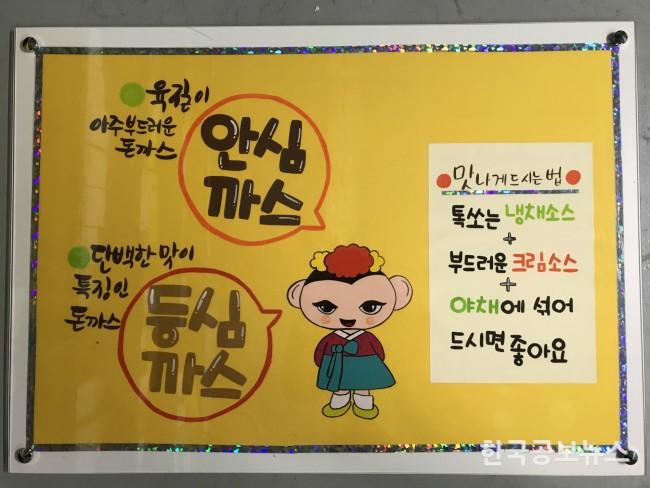 육질이
아주부드러운
돈까스
안심
까스
단백한 맛이
특징인
돈까스
등심
까스
맛나게드시는법
톡쏘는 냉채소스
+
부드러운 크림소스
+
야채에 섞어
드시면 좋아요
한국공보뉴스